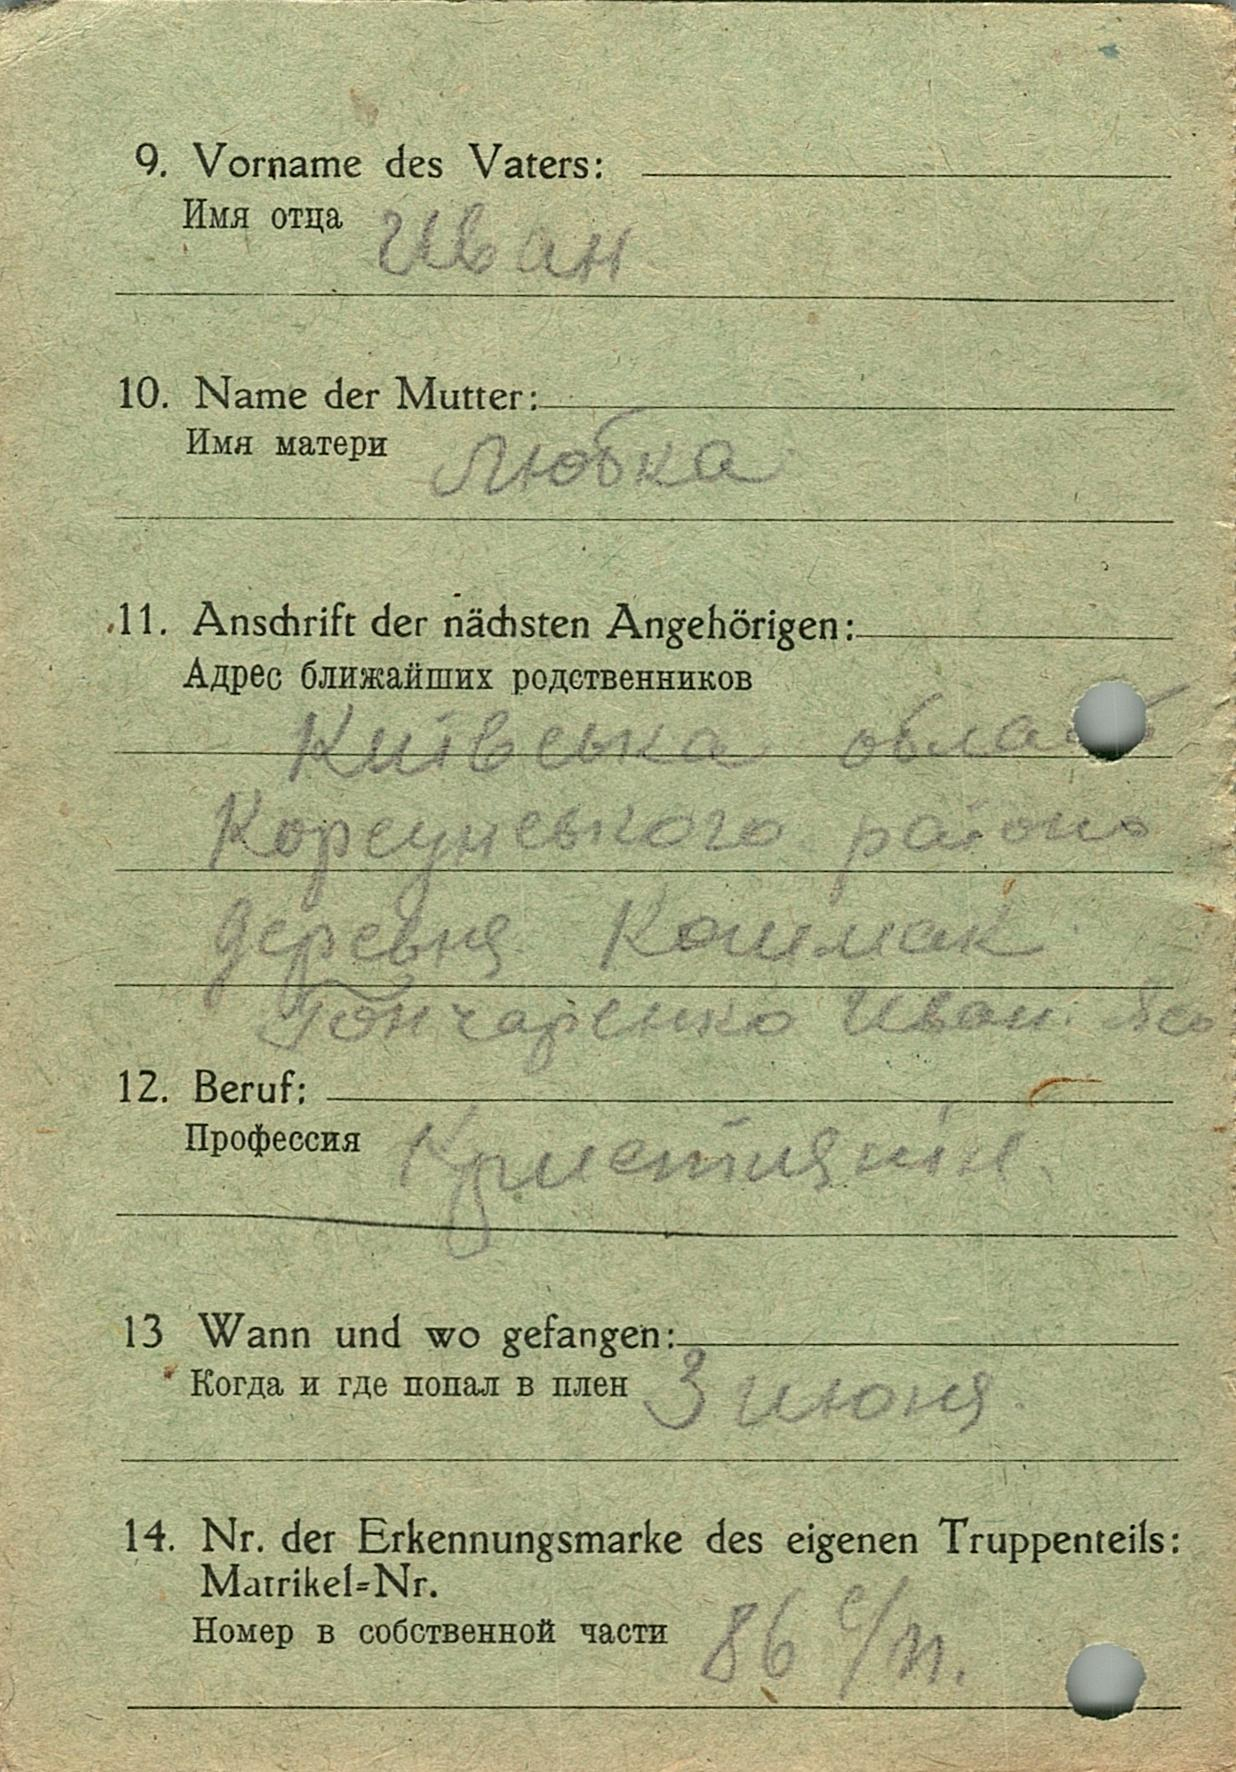 9. Vorname des Vaters:
Имя отца Иван
10. Name der Mutter:
Имя матери Любка
11. Anschrift der nächsten Angehörigen:
Адрес ближайших родственников
Київська област
Корсунського району
деревня Кошмак
Гончаренко Иван.
12. Beruf:
Профессия Кристиянін
13 Wann und wo gefangen:
Когда и где попал в плен 3 июня
14. Nr. der Erkennungsmarke des eigenen Truppenteils:
Matrikel=Nr.
Номер в собственной части 86 с/п.